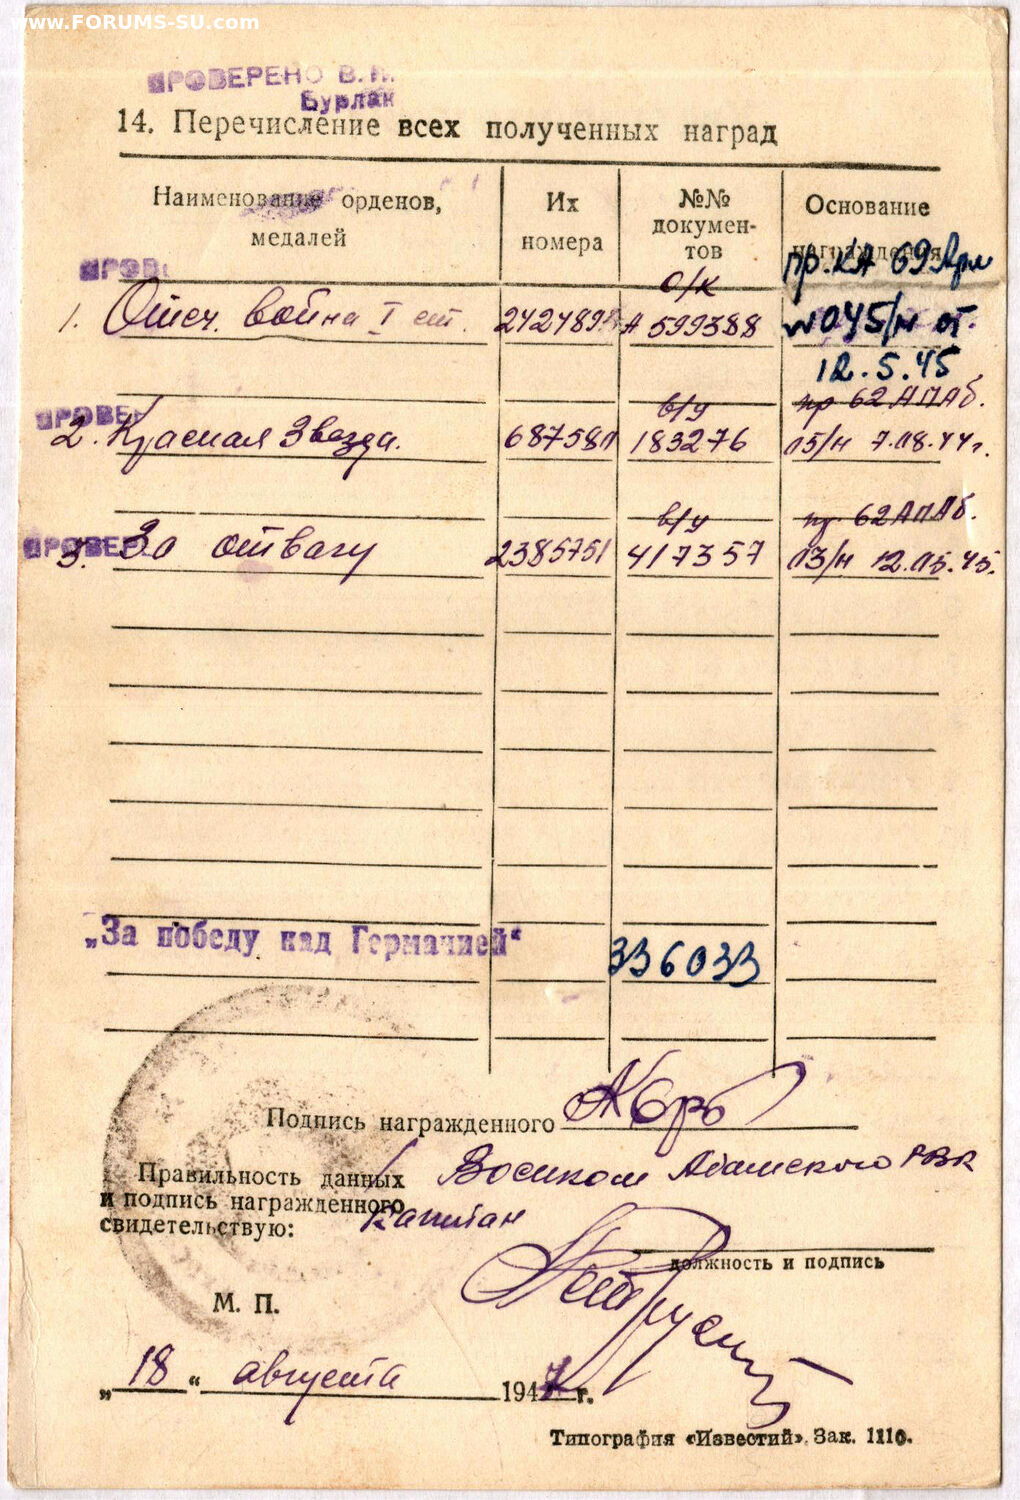 www.FORUMS-SU.com
ПРОВЕРЕНО В.П.
Бурлак
14. Перечисление всех полученных наград
Наименование орденов, медалей
Их номера
№№ документов
Основание награждения
ПРОВЕ
о/к
пр. КА 69 Арм
1. Отеч. война I ст. 2424898 А 599388 №045/н от.
12.5.45
ПРОВЕР
в/у пр 62 АПАб.
2. Красная Звезда. 687580 183276 05/н 7.08.44г.
в/у пр. 62 АПАб.
ПРОВЕР
3. За отвагу 2385751 417357 03/н 12.05.45.
„За победу над Германией“ 336033
Подпись награжденного
Правильность данных
и подпись награжденного
свидетельствую:
Военком РВК
капитан
должность и подпись
М. П.
„18“ августа 1947 г.
Типография «Известий». Зак. 1110.